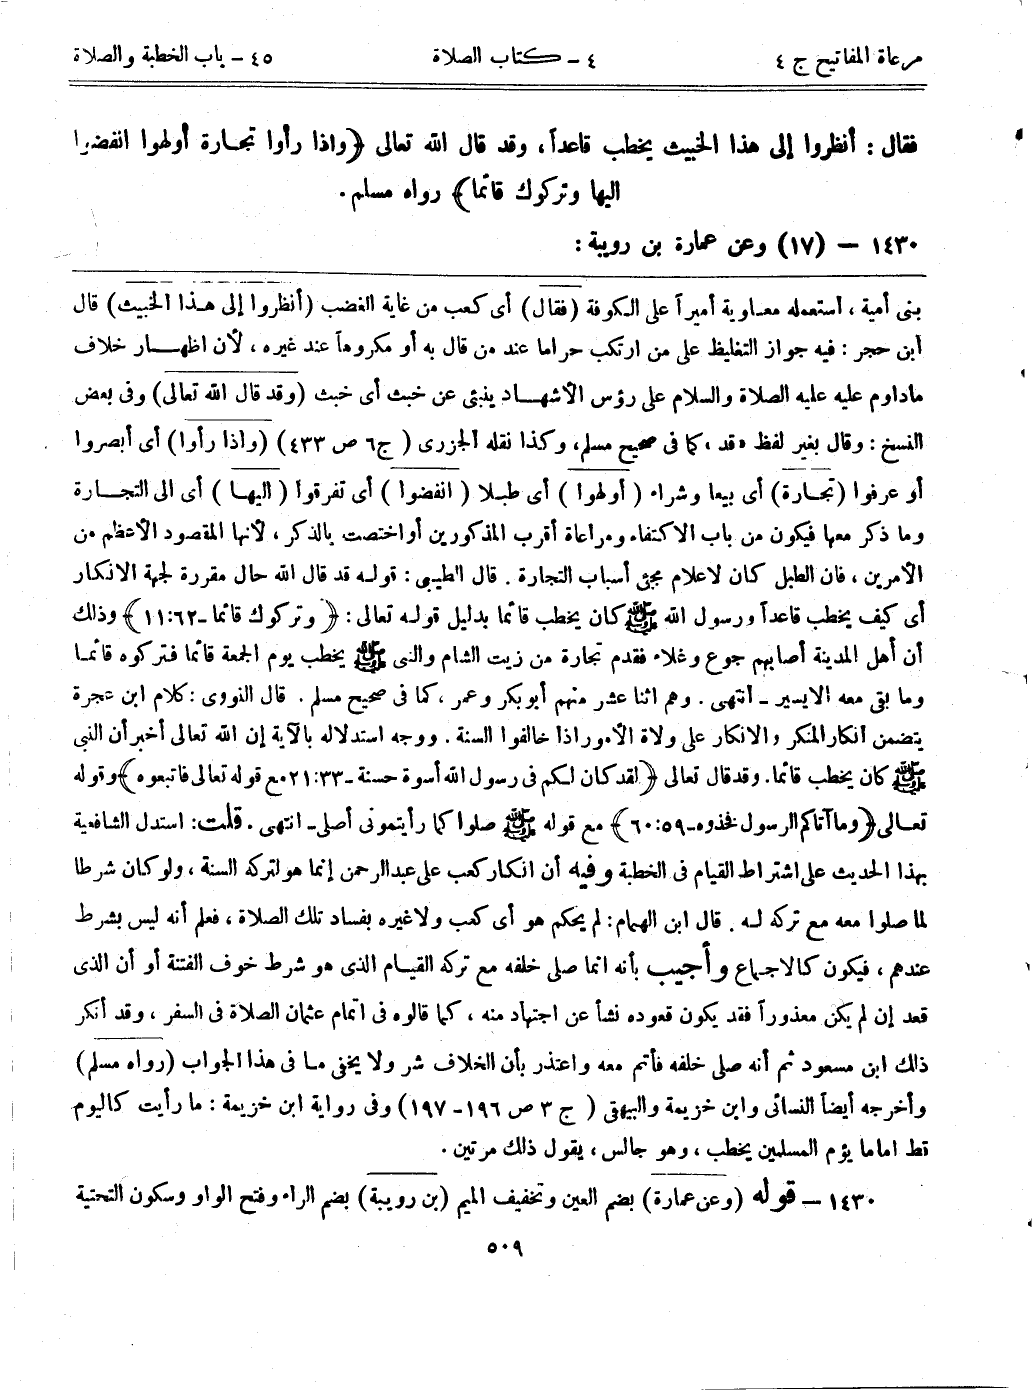 مرعاة المفاتيح ج ٤
٤ – كتاب الصلاة
٤٥ – باب الخطبة والصلاة
فقال : أنظروا إلى هذا الخبيث يخطب قاعداً ، وقد قال الله تعالى ﴿واذا رأوا تجارة أولهوا انفضوا
اليها وتركوك قائما﴾ رواه مسلم .
١٤٣٠ – (١٧) وعن عمارة بن رويبة :
بنى أمية ، استعمله معاوية أميراً على الكوفة (فقال) أى كعب من غاية الغضب (أنظروا إلى هذا الخبيث) قال
ابن حجر : فيه جواز التغليظ على من ارتكب حراما عند من قال به أو مكروهاً عند غيره ، لأن اظهار خلاف
ماداوم عليه عليه الصلاة والسلام على رؤس الأشهاد ينبئ عن خبث أى خبث (وقد قال الله تعالى) وفى بعض
النسخ : وقال بغير لفظ «قد» كما فى صحيح مسلم، وكذا نقله الجزرى ( ج٦ ص ٤٣٣) (واذا رأوا) أى أبصروا
أو عرفوا (تجارة) أى بيعا وشراء ( أولهوا ) أى طبلا ( انفضوا ) أى تفرقوا ( اليها ) أى الى التجارة
وما ذكر معها فيكون من باب الاكتفاء ومراعاة أقرب المذكورين أو اختصت بالذكر ، لأنها المقصود الأعظم من
الأمرين ، فان الطبل كان لاعلام مجئ أسباب التجارة . قال الطيبى : قوله قد قال الله حال مقررة لجهة الانكار
أى كيف يخطب قاعداً ورسول الله ﷺ كان يخطب قائما بدليل قوله تعالى : ﴿ وتركوك قائما -٦٢:١١﴾ وذلك
أن أهل المدينة أصابهم جوع وغلاء فقدم تجارة من زيت الشام والنبى ﷺ يخطب يوم الجمعة قائما فتركوه قائما
وما بقى معه الا يسير – أنتهى . وهم اثنا عشر منهم أبوبكر وعمر ، كما فى صحيح مسلم . قال النووى : كلام ابن عجرة
يتضمن أنكار المنكر والانكار على ولاة الأمور اذا خالفوا السنة . ووجه استدلاله بالآية إن الله تعالى أخبر أن النبى
ﷺ كان يخطب قائما. وقد قال تعالى ﴿لقد كان لكم فى رسول الله أسوة حسنة -٢١:٣٣ مع قوله تعالى فاتبعوه﴾ وقوله
تعالى ﴿وما آتاكم الرسول فخذوه -٦٠:٥٩﴾ مع قوله ﷺ صلوا كما رأيتمونى أصلى – انتهى . قلت: استدل الشافعية
بهذا الحديث على اشتراط القيام فى الخطبة وفيه أن انكار كعب على عبدالرحمن إنما هو لتركه السنة ، ولو كان شرطا
لما صلوا معه مع تركه له . قال ابن الهمام : لم يحكم هو أى كعب ولاغيره بفساد تلك الصلاة ، فعلم أنه ليس بشرط
عندهم ، فيكون كالاجماع وأجيب بأنه انما صلى خلفه مع تركه القيام الذى هو شرط خوف الفتنة أو أن الذى
قعد إن لم يكن معذوراً فقد يكون قعوده نشأ عن اجتهاد منه ، كما قالوه فى اتمام عثمان الصلاة فى السفر ، وقد أنكر
ذلك ابن مسعود ثم أنه صلى خلفه فأتم معه واعتذر بأن الخلاف شر ولا يخفى ما فى هذا الجواب (رواه مسلم)
وأخرجه أيضاً النسائى وابن خزيمة والبيهقى ( ج ٣ ص ١٩٦- ١٩٧) وفى رواية ابن خزيمة : ما رأيت كاليوم
قط اماما يؤم المسلمين يخطب ، وهو جالس ، يقول ذلك مرتين .
١٤٣٠ – قوله (وعن عمارة) بضم العين وتخفيف الميم (بن رويبة) بضم الراء وفتح الواو وسكون التحتية
٥٠٩